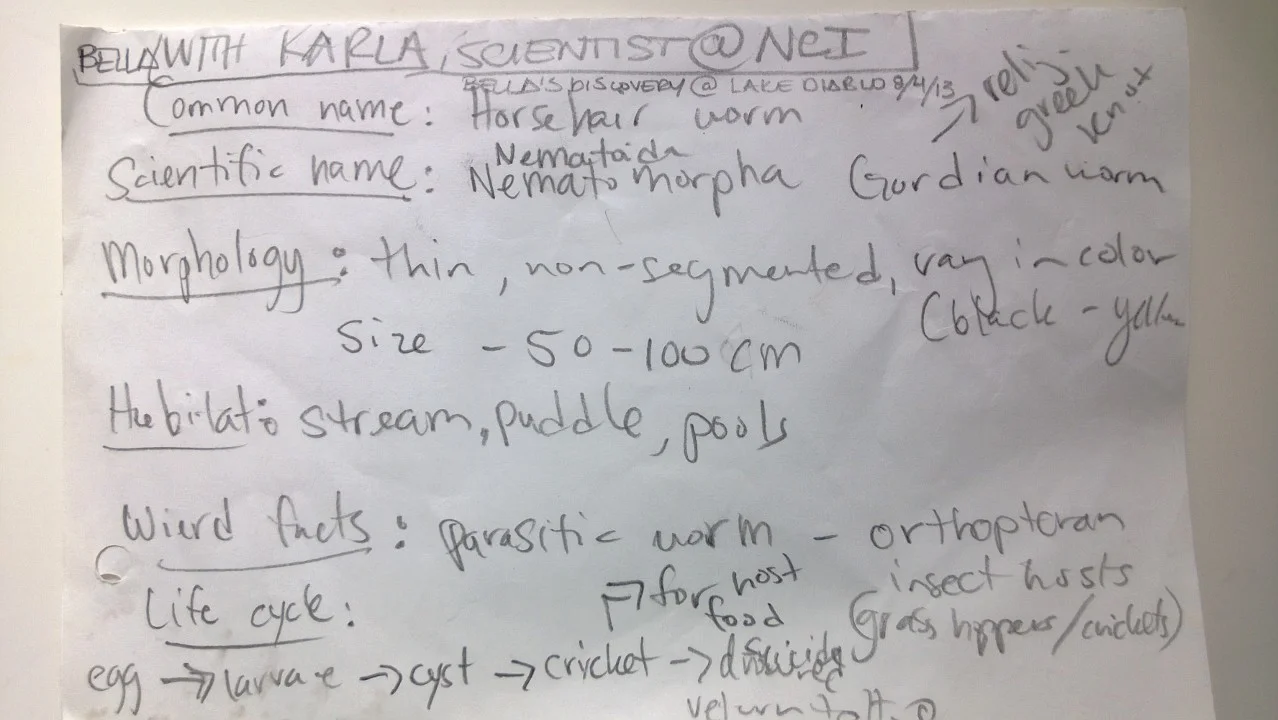 BELLA WITH KARLA, SCIENTIST @ NCI
BELLA'S DISCOVERY @ LAKE DIABLO 8/4/13
Common name: Horsehair worm
relig
greek
knot
Nematoida
Scientific name: Nematomorpha Gordian worm
Morphology: thin, non-segmented, vary in color
(black - yellow
Size - 50-100 cm
Habitat: stream, puddle, pools
Wierd facts: parasitic worm - orthopteran
insect hosts
(grasshoppers/crickets)
Life cycle:
for host
food
egg → larvae → cyst → cricket →
return to H2O